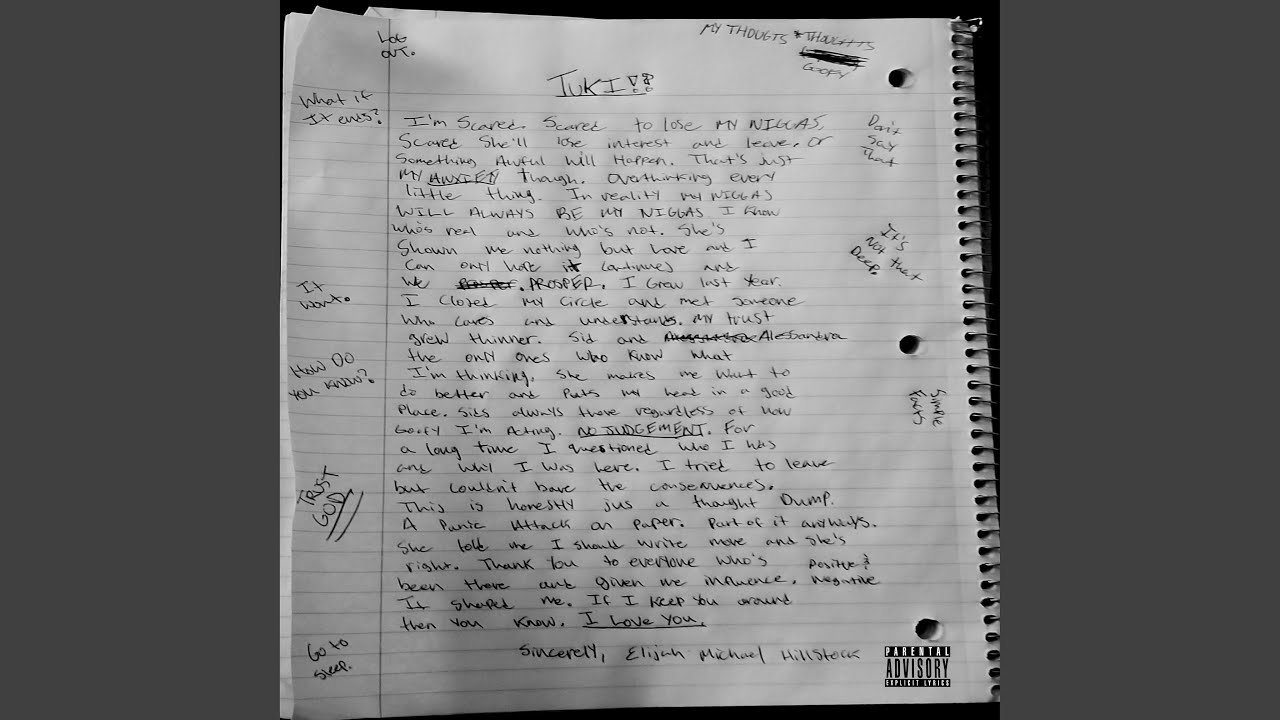 LOG
OUT.
MY THOUGTS *THOUGHTS
GOOFY
JUKI!?
What if
It ends?
I'm Scared. Scared to lose MY NIGGAS,
Scared She'll lose interest and leave, or
Something Awful Will Happen. That's just
MY ANXIETY though. Overthinking every
little thing. In reality my NIGGAS
WILL ALWAYS BE MY NIGGAS I know
who's real and who's not. She's
Shown me nothing but Love and I
Can only hope it continues and
We PROSPER. I Grew last year.
I closed my circle and met someone
Who cares and understands. My trust
grew thinner. Sid and Alessandra
the only ones who know what
I'm thinking. She makes me want to
do better and puts my head in a good
Place. Sids always there regardless of how
Goofy I'm Acting. NO JUDGEMENT. For
a long time I questioned who I was
and why I was here. I tried to leave
but couldn't bare the consequences.
This is honestly jus a thought Dump.
A Panic Attack on Paper. Part of it anyways.
She told me I should write more and she's
right. Thank you to everyone who's
been there and given me influence, Positive &
negative
It shaped me. If I keep you around
then you know. I LOVE YOU.
Sincerely, Elijah Michael Hillstock
Don't
Say
That
It's
Not that
Deep.
It
won't.
HOW DO
YOU KNOW?
Simple
Facts
TRUST
GOD
Go to
Sleep.
PARENTAL
ADVISORY
EXPLICIT LYRICS